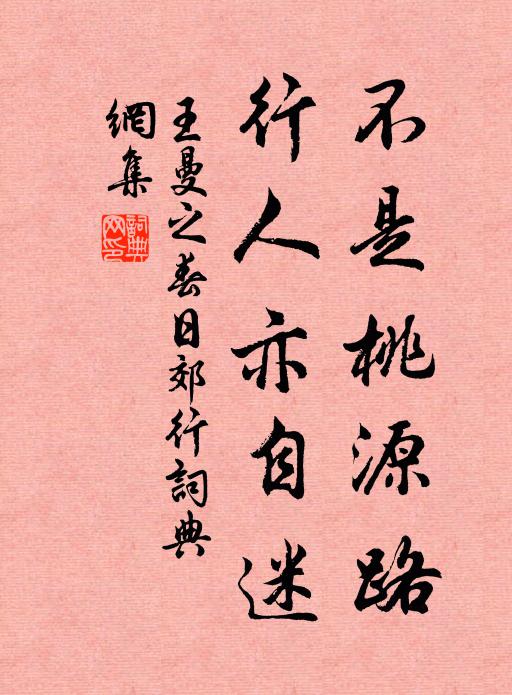 不是桃源路
行人亦自迷
王曼之春日郊行詞典
網集
詞典網印